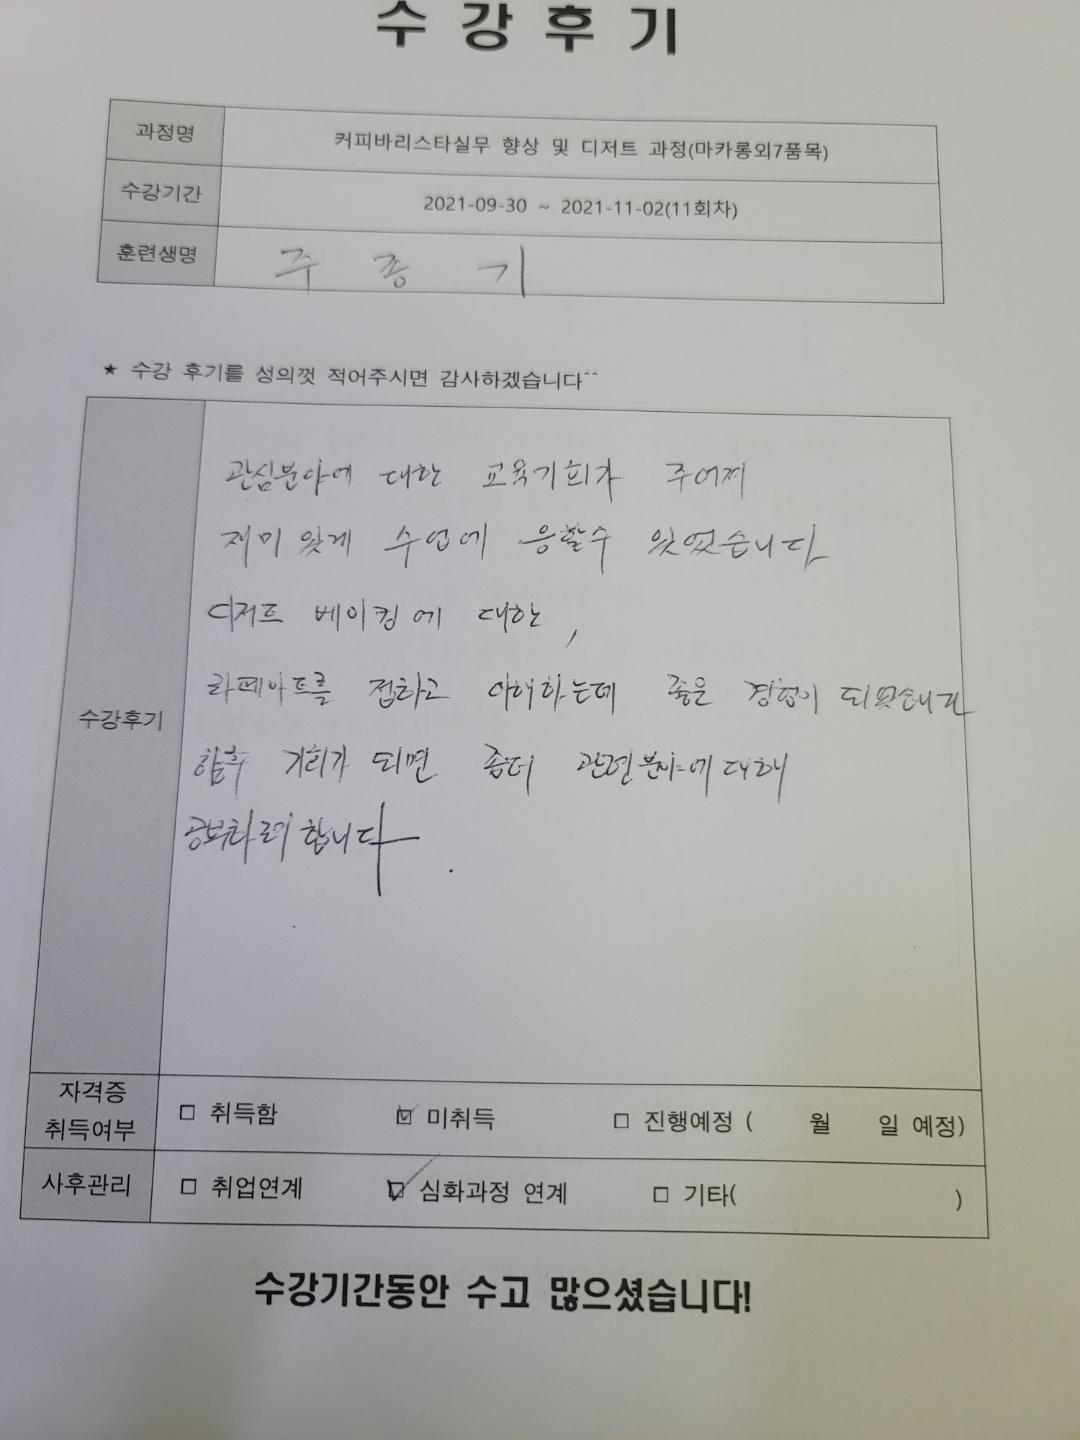 수 강 후 기
과정명 커피바리스타실무 향상 및 디저트 과정(마카롱외7품목)
수강기간 2021-09-30 ~ 2021-11-02(11회차)
훈련생명 주 종 기
★ 수강 후기를 성의껏 적어주시면 감사하겠습니다^^
관심분야에 대한 교육기회가 주어져
재미 있게 수업에 응할수 있었습니다
디저트 베이킹에 대한,
라떼아트를 접하고 이해하는데 좋은 경험이 되었습니다
수강후기
향후 기회가 되면 좀더 관련분야에 대해
공부하려 합니다.
자격증
취득여부 □ 취득함 ☑ 미취득 □ 진행예정 ( 월 일 예정)
사후관리 □ 취업연계 ☑ 심화과정 연계 □ 기타( )
수강기간동안 수고 많으셨습니다!